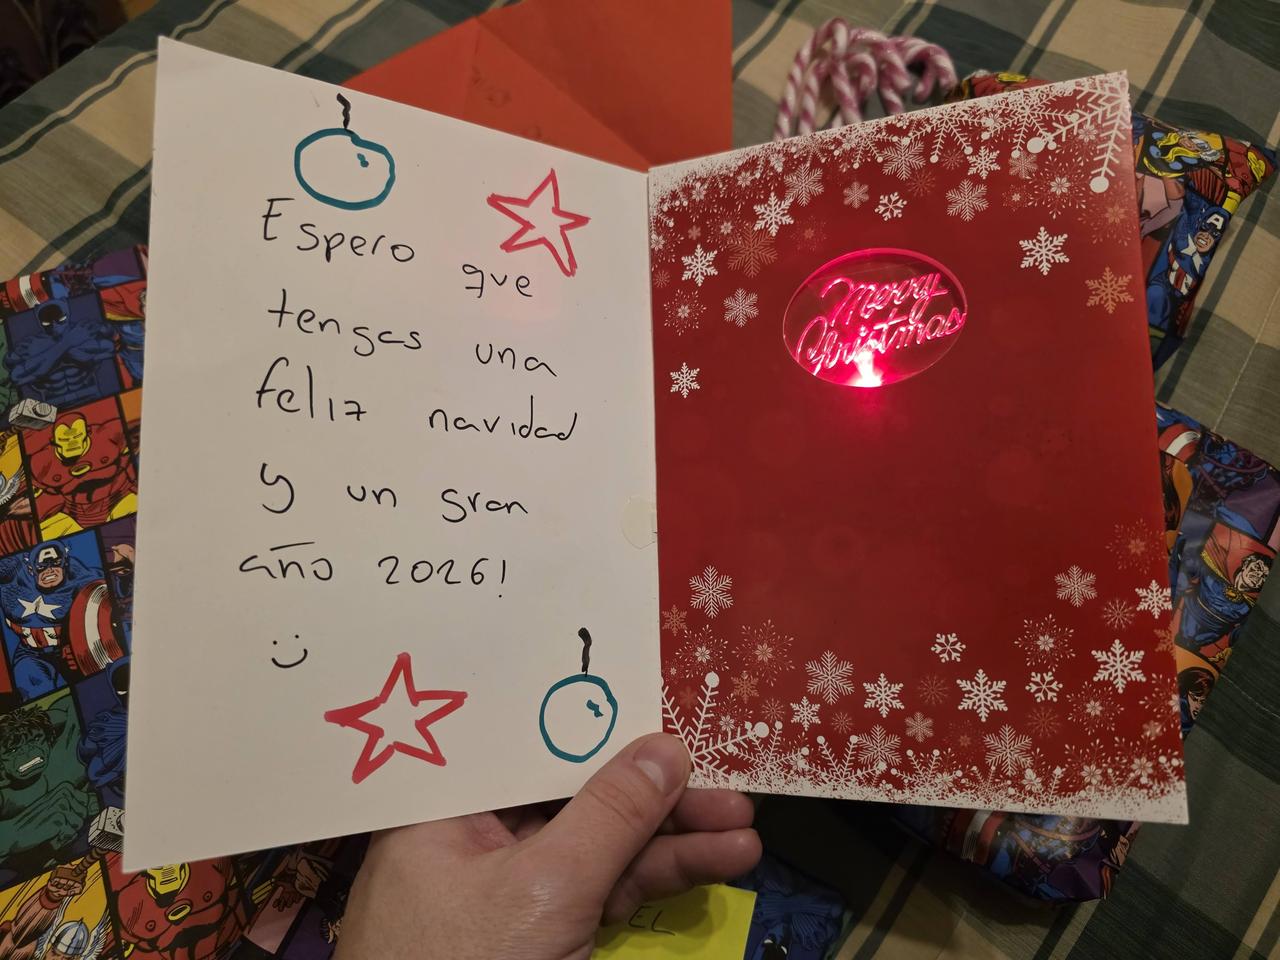 Espero que
tengas una
feliz navidad
y un gran
año 2026!
:)
Merry
Christmas
EL